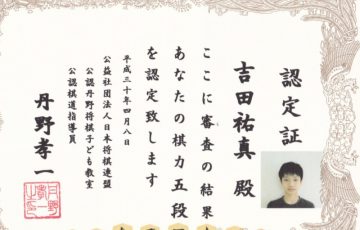 認定証
吉田祐真殿
ここに審査の結果
あなたの棋力五段
を認定致します
平成三十年四月八日
公益社団法人日本将棋連盟
公認丹野将棋子ども教室
公認棋道指導員
丹野孝一